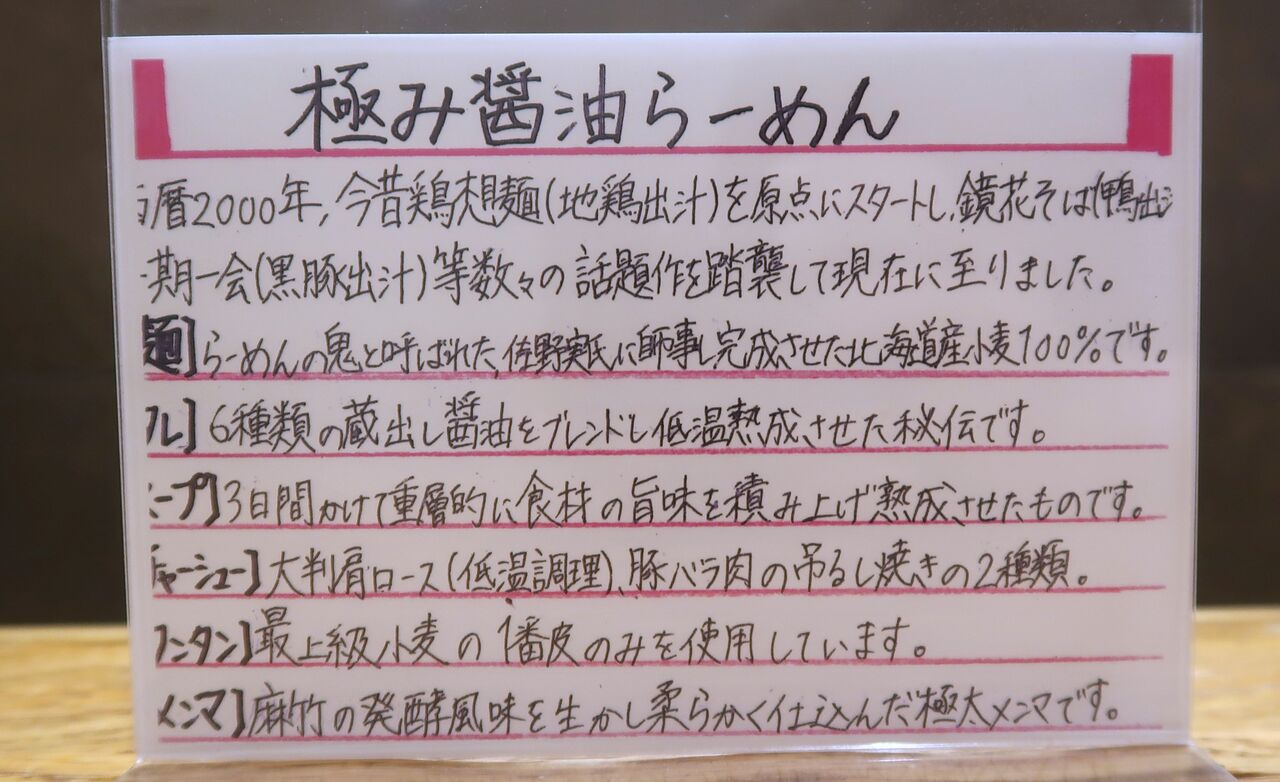 極み醤油らーめん
暦2000年,今昔鶏想麺(地鶏出汁)を原点にスタートし,鏡花そば(鴨出
期一会(黒豚出汁)等数々の話題作を踏襲して現在に至りました。
麺]らーめんの鬼と呼ばれた,佐野実氏に師事し完成させた北海道産小麦100%です。
レ]6種類の蔵出し醤油をブレンドし低温熟成させた秘伝です。
ープ]3日間かけて重層的に食材の旨味を積み上げ熟成させたものです。
チャーシュー]大判肩ロース(低温調理)、豚バラ肉の吊るし焼きの2種類。
ワンタン]最上級小麦の1番皮のみを使用しています。
メンマ]麻竹の発酵風味を生かし柔らかく仕込んだ極太メンマです。